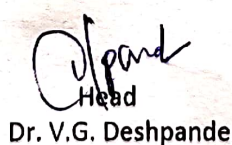 Head
Dr. V.G. Deshpande